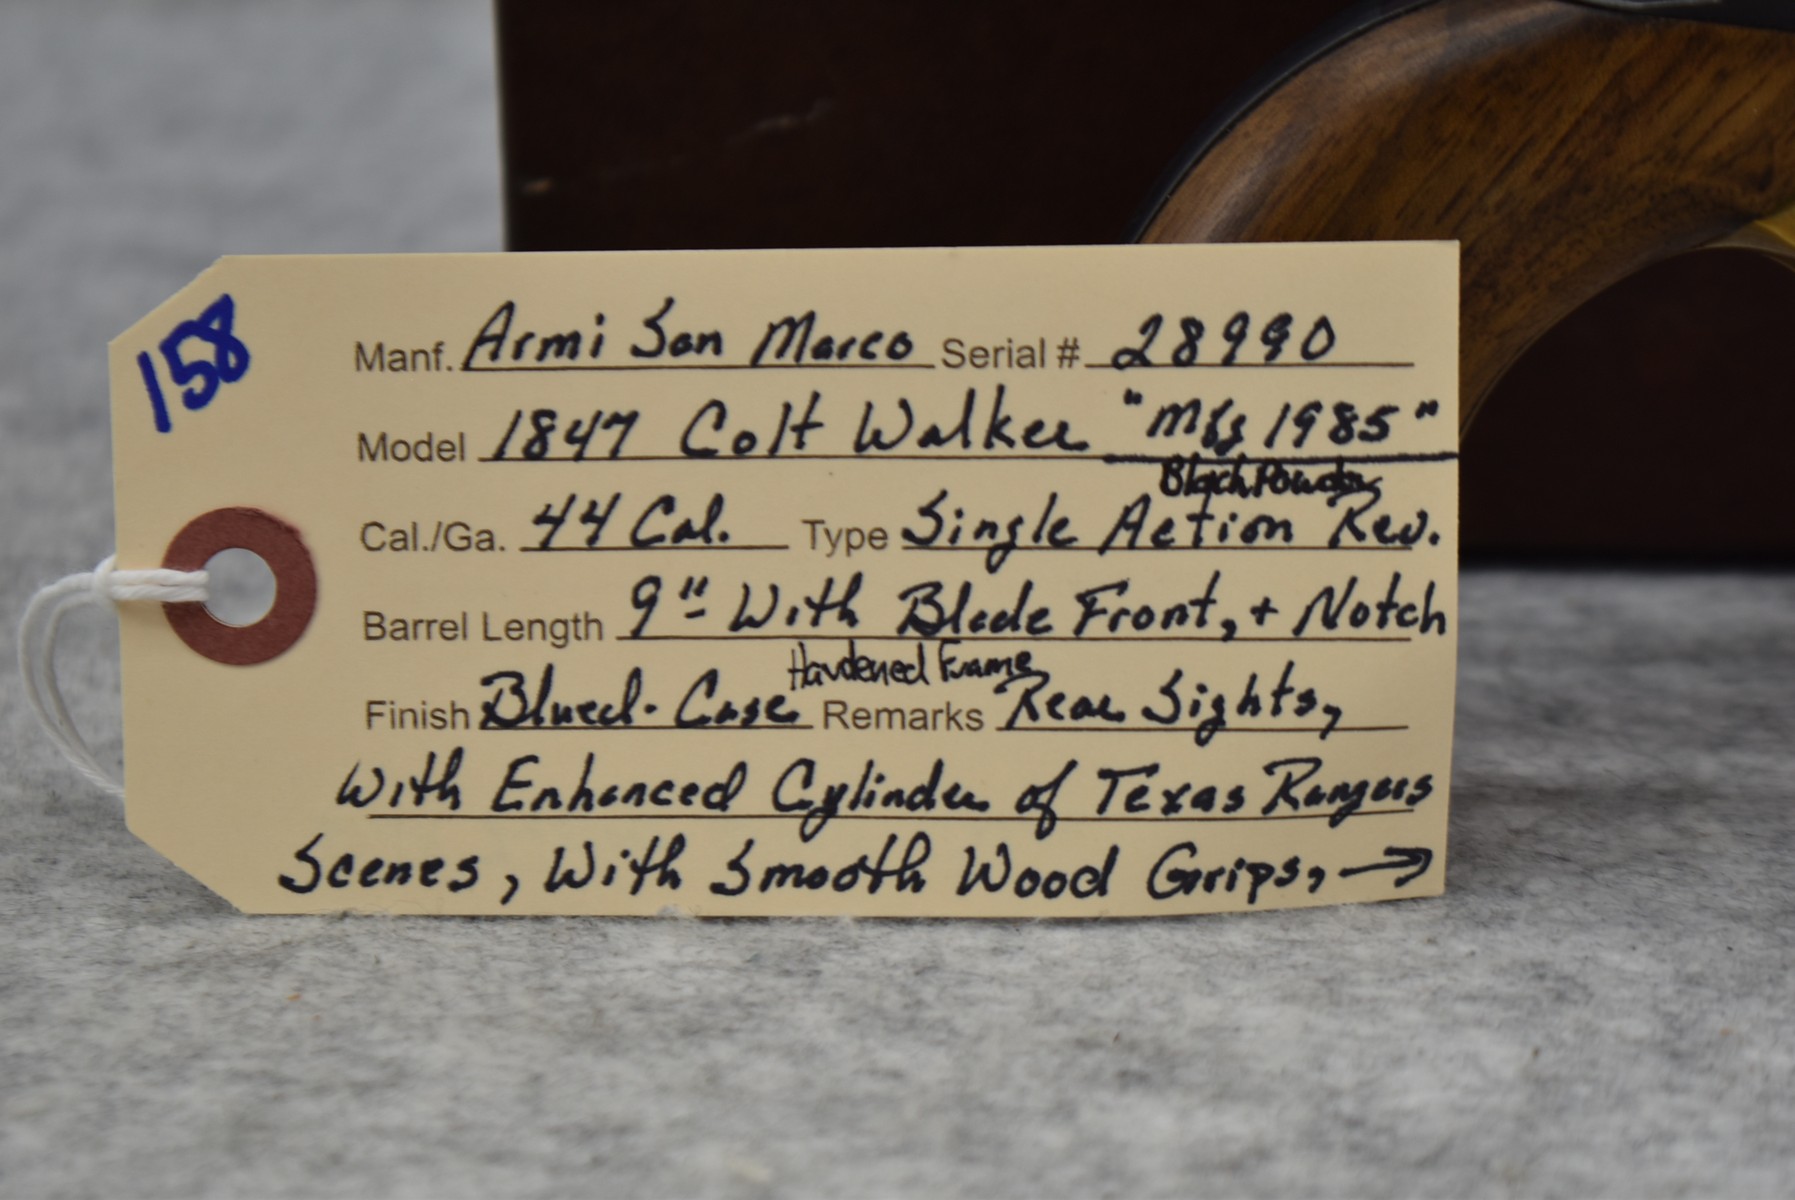 158
Manf. Armi San Marco Serial # 28990
Model 1847 Colt Walker "Mfg 1985"
Black Powder
Cal./Ga. 44 Cal. Type Single Action Rev.
Barrel Length 9" With Blade Front, + Notch
Hardened Frame
Finish Blued - Case Remarks Rear Sights,
With Enhanced Cylinder of Texas Rangers
Scenes, With Smooth Wood Grips, →